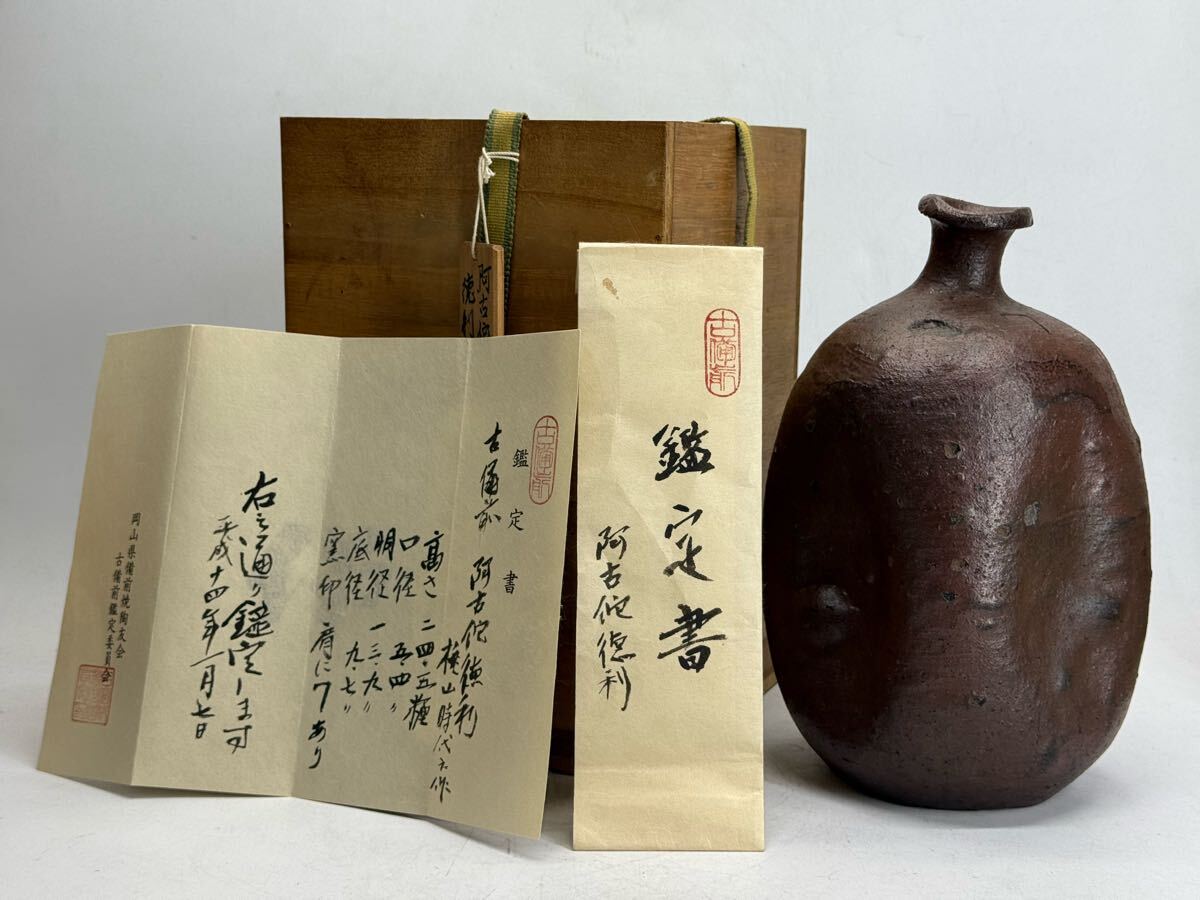 阿古陀
徳利
古備前
鑑定書
阿古陀徳利
古備前
鑑定書
古備前 阿古陀徳利
桃山時代
高さ 二四・五糎
口径 五・四〃
胴径 一三・九〃
底径 九・七〃
窯印 肩に7あり
右之通り鑑定します
平成十四年一月七日
岡山県備前焼陶友会
古備前鑑定委員会